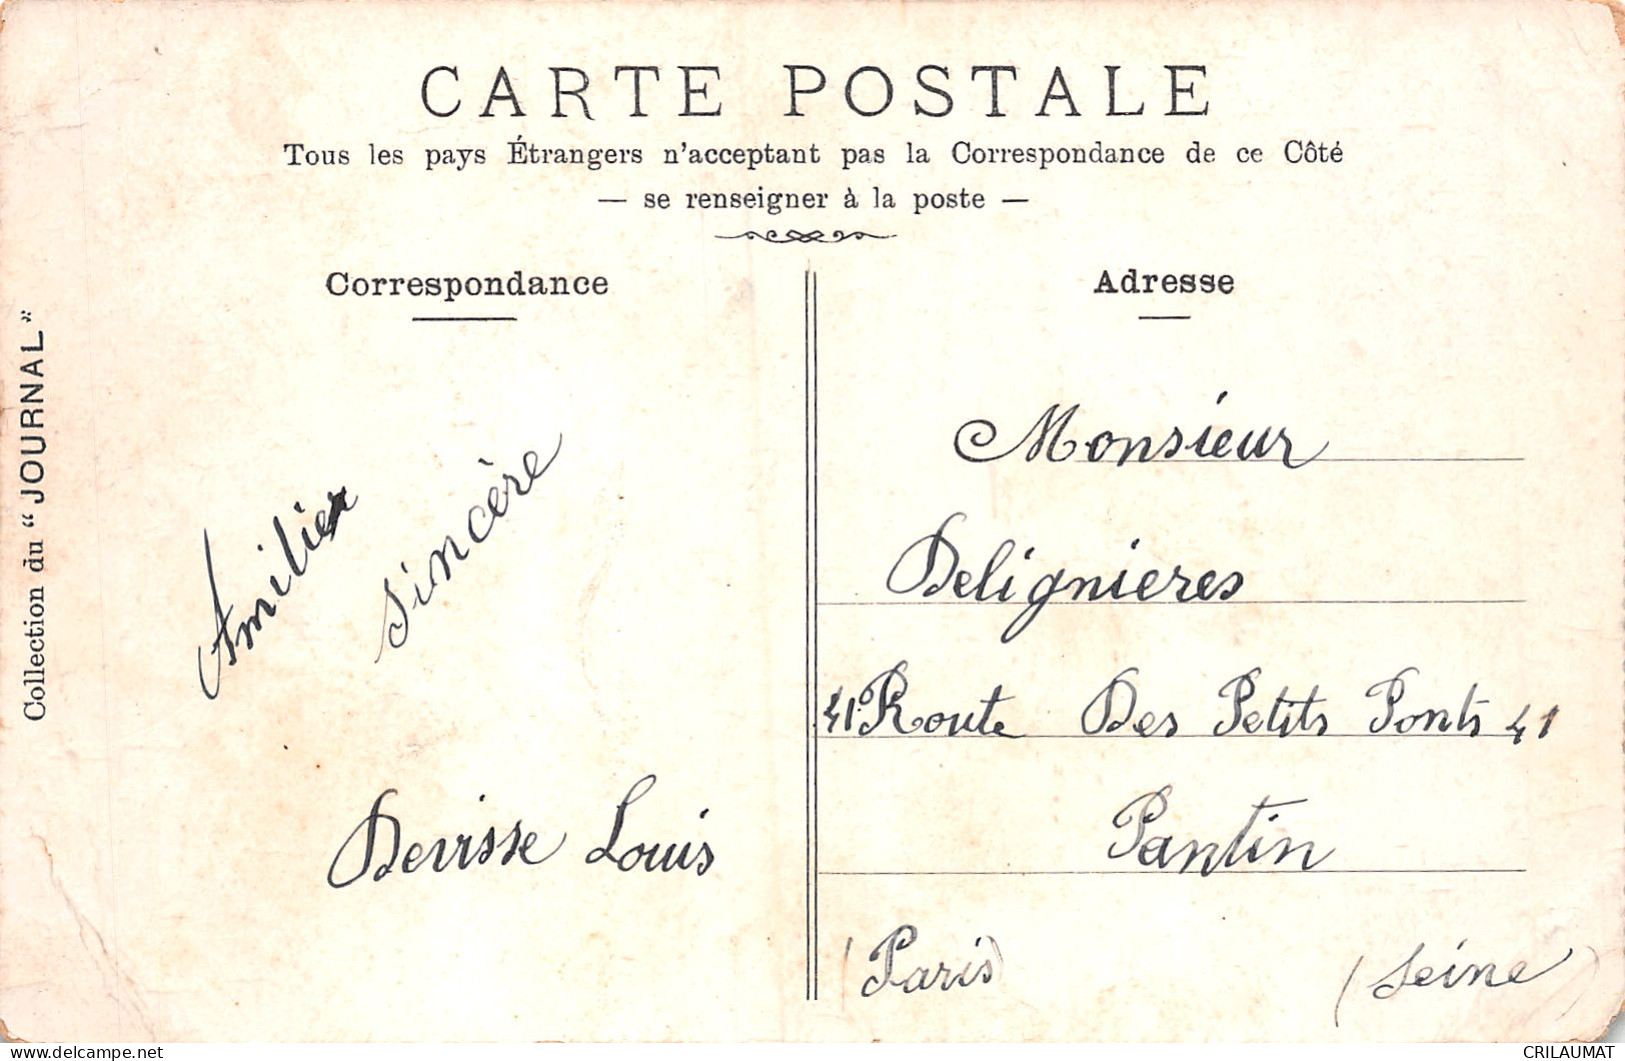 CARTE POSTALE
Tous les pays Étrangers n'acceptant pas la Correspondance de ce Côté
— se renseigner à la poste —
Correspondance
Collection du "JOURNAL"
Amilier
Sincère
Devisse Louis
Adresse
Monsieur
Delignieres
41 Route Des Petits Ponts 41
Pantin
(Paris) (Seine)
delcampe.net
CRILAUMAT